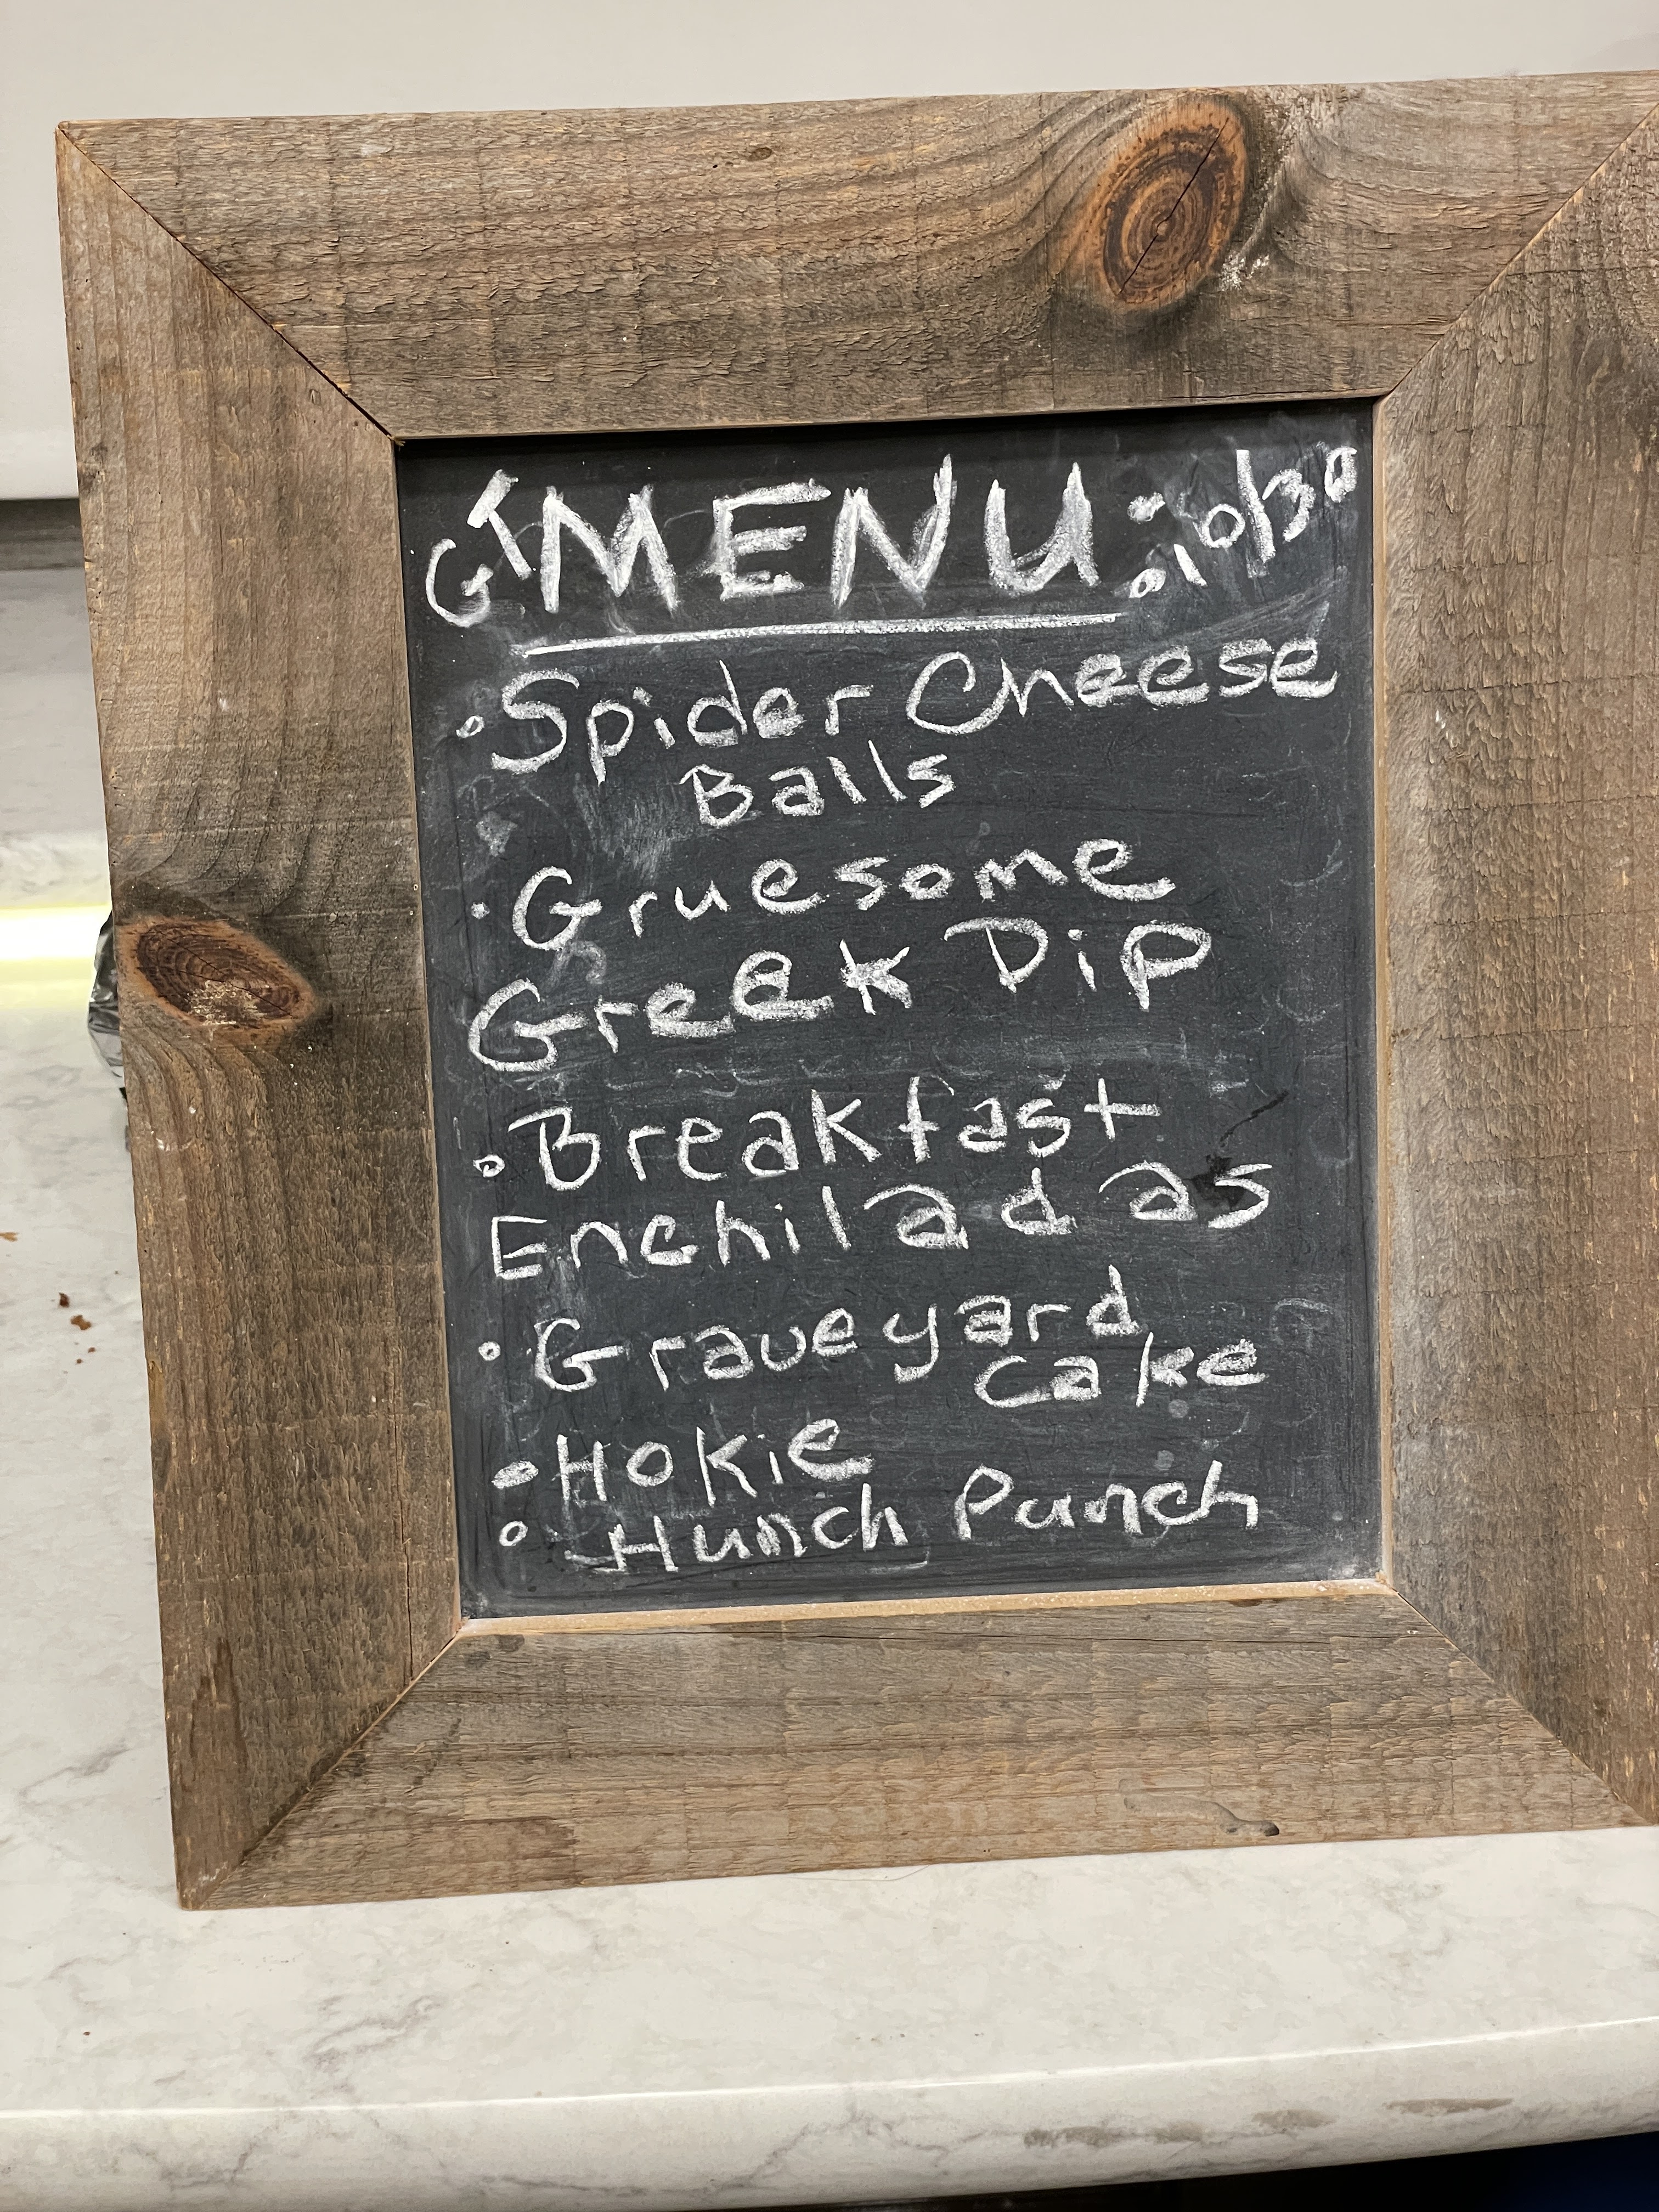 GT MENU: 10/30
• Spider Cheese
Balls
• Gruesome
Greek Dip
• Breakfast
Enchiladas
• Graveyard
Cake
• Hokie
• Hunch Punch